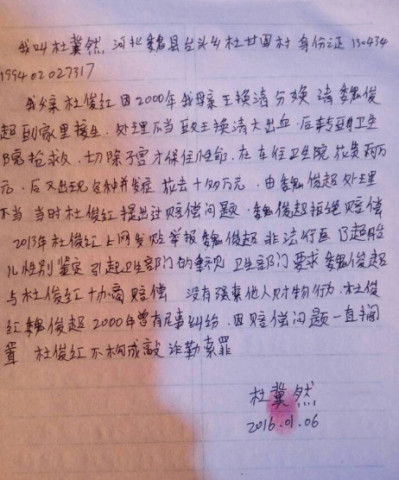 我叫杜冀然,河北魏县台头乡杜甘固村 身份证 130434
199402027317
我父亲杜俊红因2000年我母亲王换清分娩 请魏俊
超到家里接生,处理不当致王换清大出血,后转到卫生
院抢救,切除子宫才保住性命,在车往卫生院花费两万
元,后又出现各种并发症 花去十多万元,由魏俊超处理
不当 当时杜俊红提出过赔偿问题,魏俊超拒绝赔偿
2015年杜俊红上网发贴举报魏俊超非法行医 B超胎
儿性别鉴定 引起卫生部门的重视 卫生部门要求魏俊超
与杜俊红协商赔偿 没有强索他人财物行为,杜俊
红魏俊超2000年曾有民事纠纷,因赔偿问题一直搁
置 杜俊红不构成敲诈勒索罪
杜冀然
2016.01.06